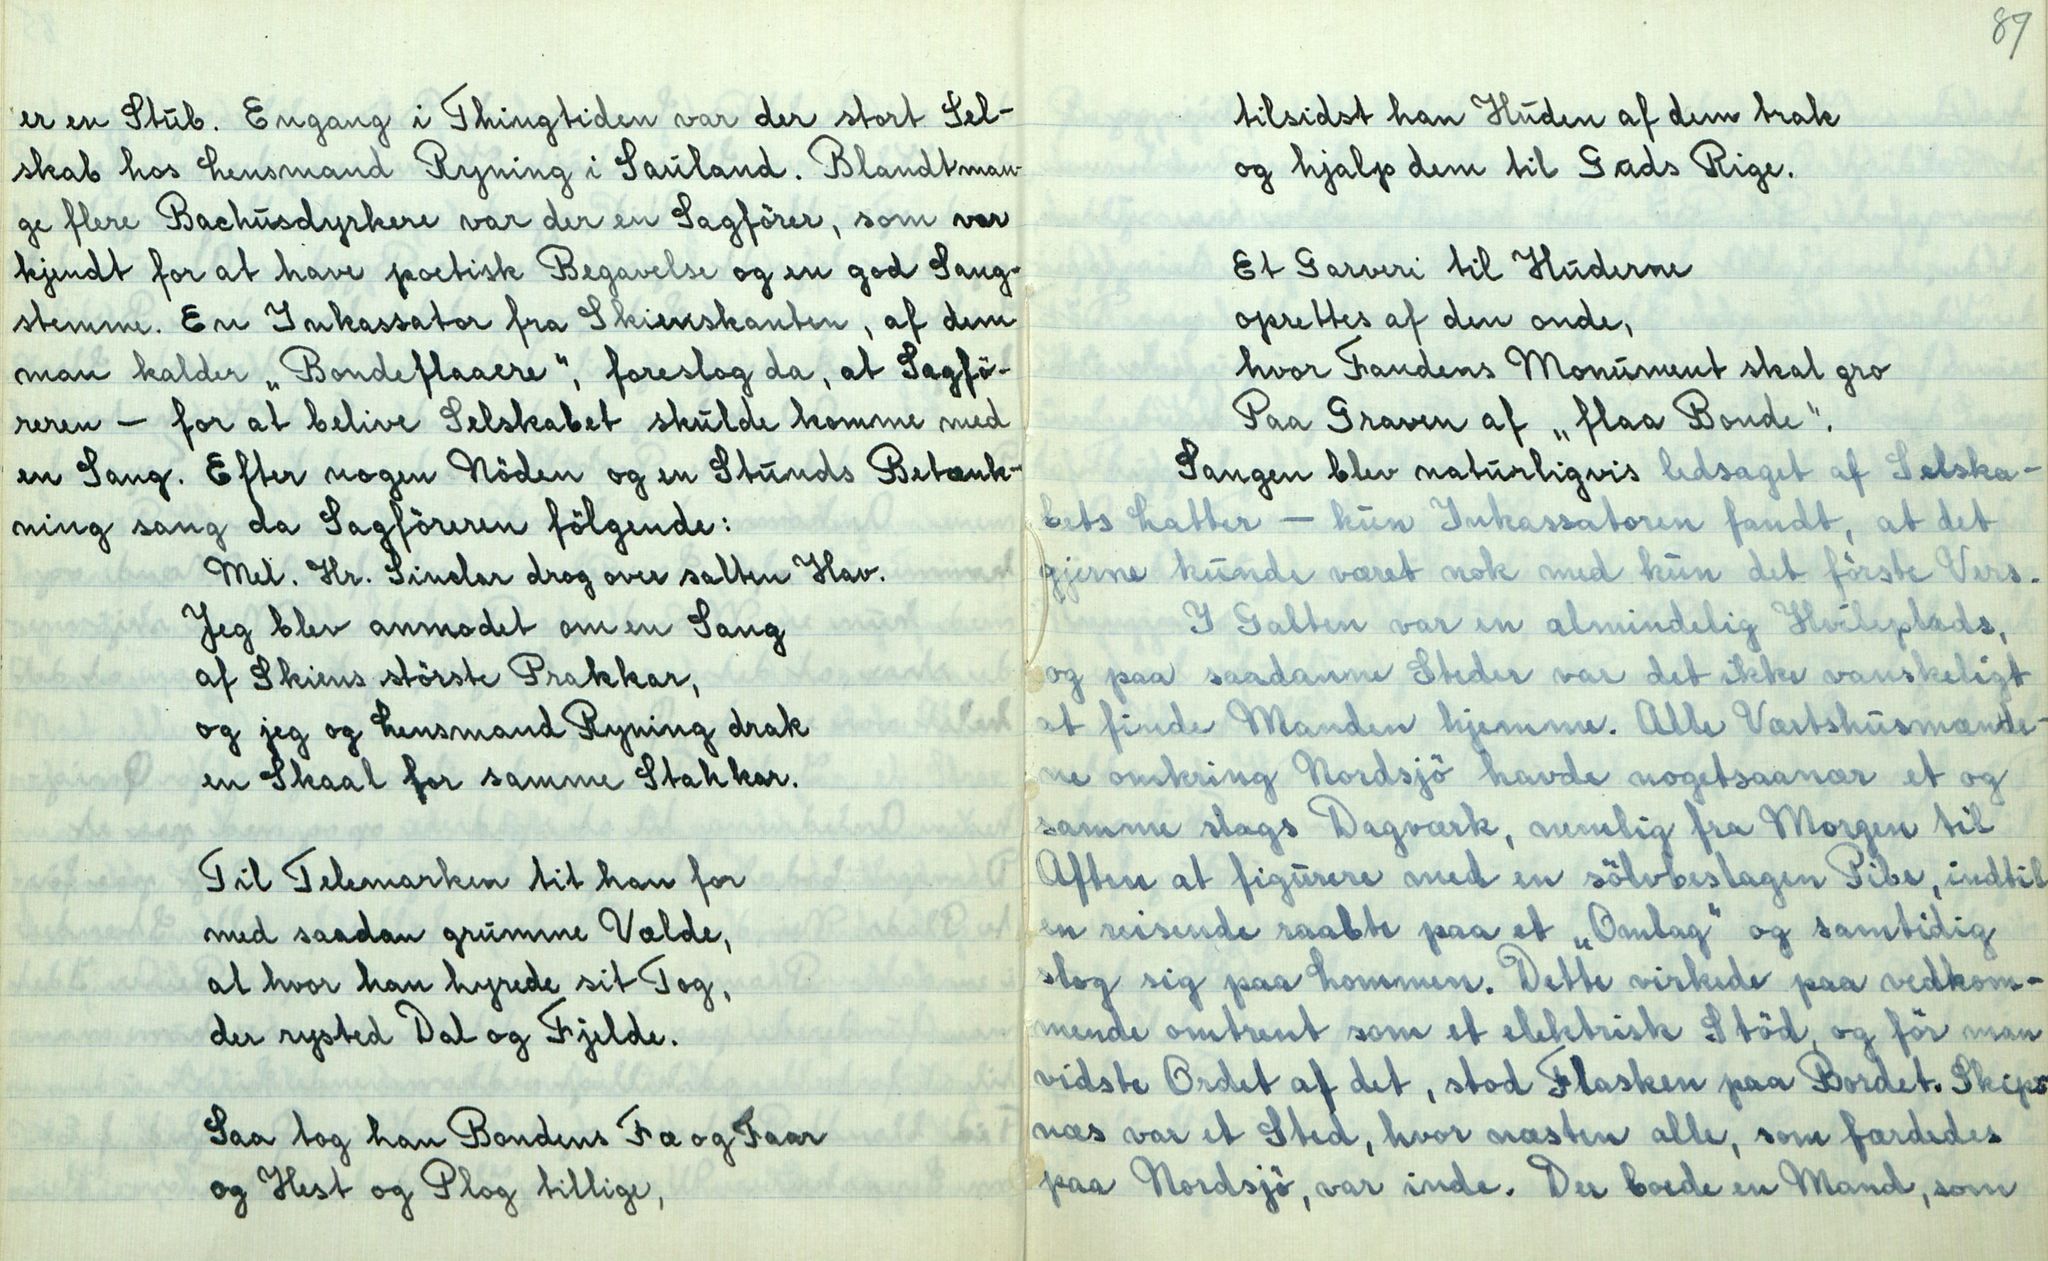 er en Stub. Engang i Thingtiden var der stort Sel-
skab hos Lensmand Ryning i Sauland. Blandt man-
ge flere Bachusdyrkere var der en Sagförer, som var
kjendt for at have poetisk Begavelse og en god Sang-
stemme. En Inkassator fra Skienskanten, af dem
man kalder „Bondeflaaere", foreslog da, at Sagfö-
reren — for at belive Selskabet skulde komme med
en Sang. Efter nogen Nöden og en Stunds Betænk-
ning sang da Sagföreren fölgende:
Mel. Hr. Sinclar drog over salten Hav.
Jeg blev anmodet om en Sang
af Skiens störste Prakkar,
og jeg og Lensmand Ryning drak
en Skaal for samme Stakkar.
Til Telemarken tit han for
med saadan grumme Vælde,
at hvor han hyrede sit Tog,
der rysted Dal og Fjelde.
Saa tog han Bondens Fæ og Faar
og Hest og Plog tillige,
89
tilsidst han Huden af dem trak
og hjalp dem til Gads Rige.
Et Garveri til Huderne
oprettes af den onde,
hvor Fandens Monument skal gro
Paa Graven af „flaa Bonde".
Sangen blev naturligvis ledsaget af Selska-
bets Latter — kun Inkassatoren fandt, at det
gjerne kunde været nok med kun det förste Vers.
I Galten var en almindelig Hvileplads,
og paa saadanne Steder var det ikke vanskeligt
at finde Manden hjemme. Alle Værtshusmænde-
ne omkring Nordsjö havde nogetsaanær et og
samme slags Dagværk, nemlig fra Morgen til
Aften at figurere med en sölvbeslagen Pibe, indtil
en reisende raabte paa et „Omlag" og samtidig
slog sig paa Lommen. Dette virkede paa vedkom-
mende omtrent som et elektrisk Stöd, og för man
vidste Ordet af det, stod Flasken paa Bordet. Skips
næs var et Sted, hvor næsten alle, som færdedes
paa Nordsjö, var inde. Der boede en Mand, som